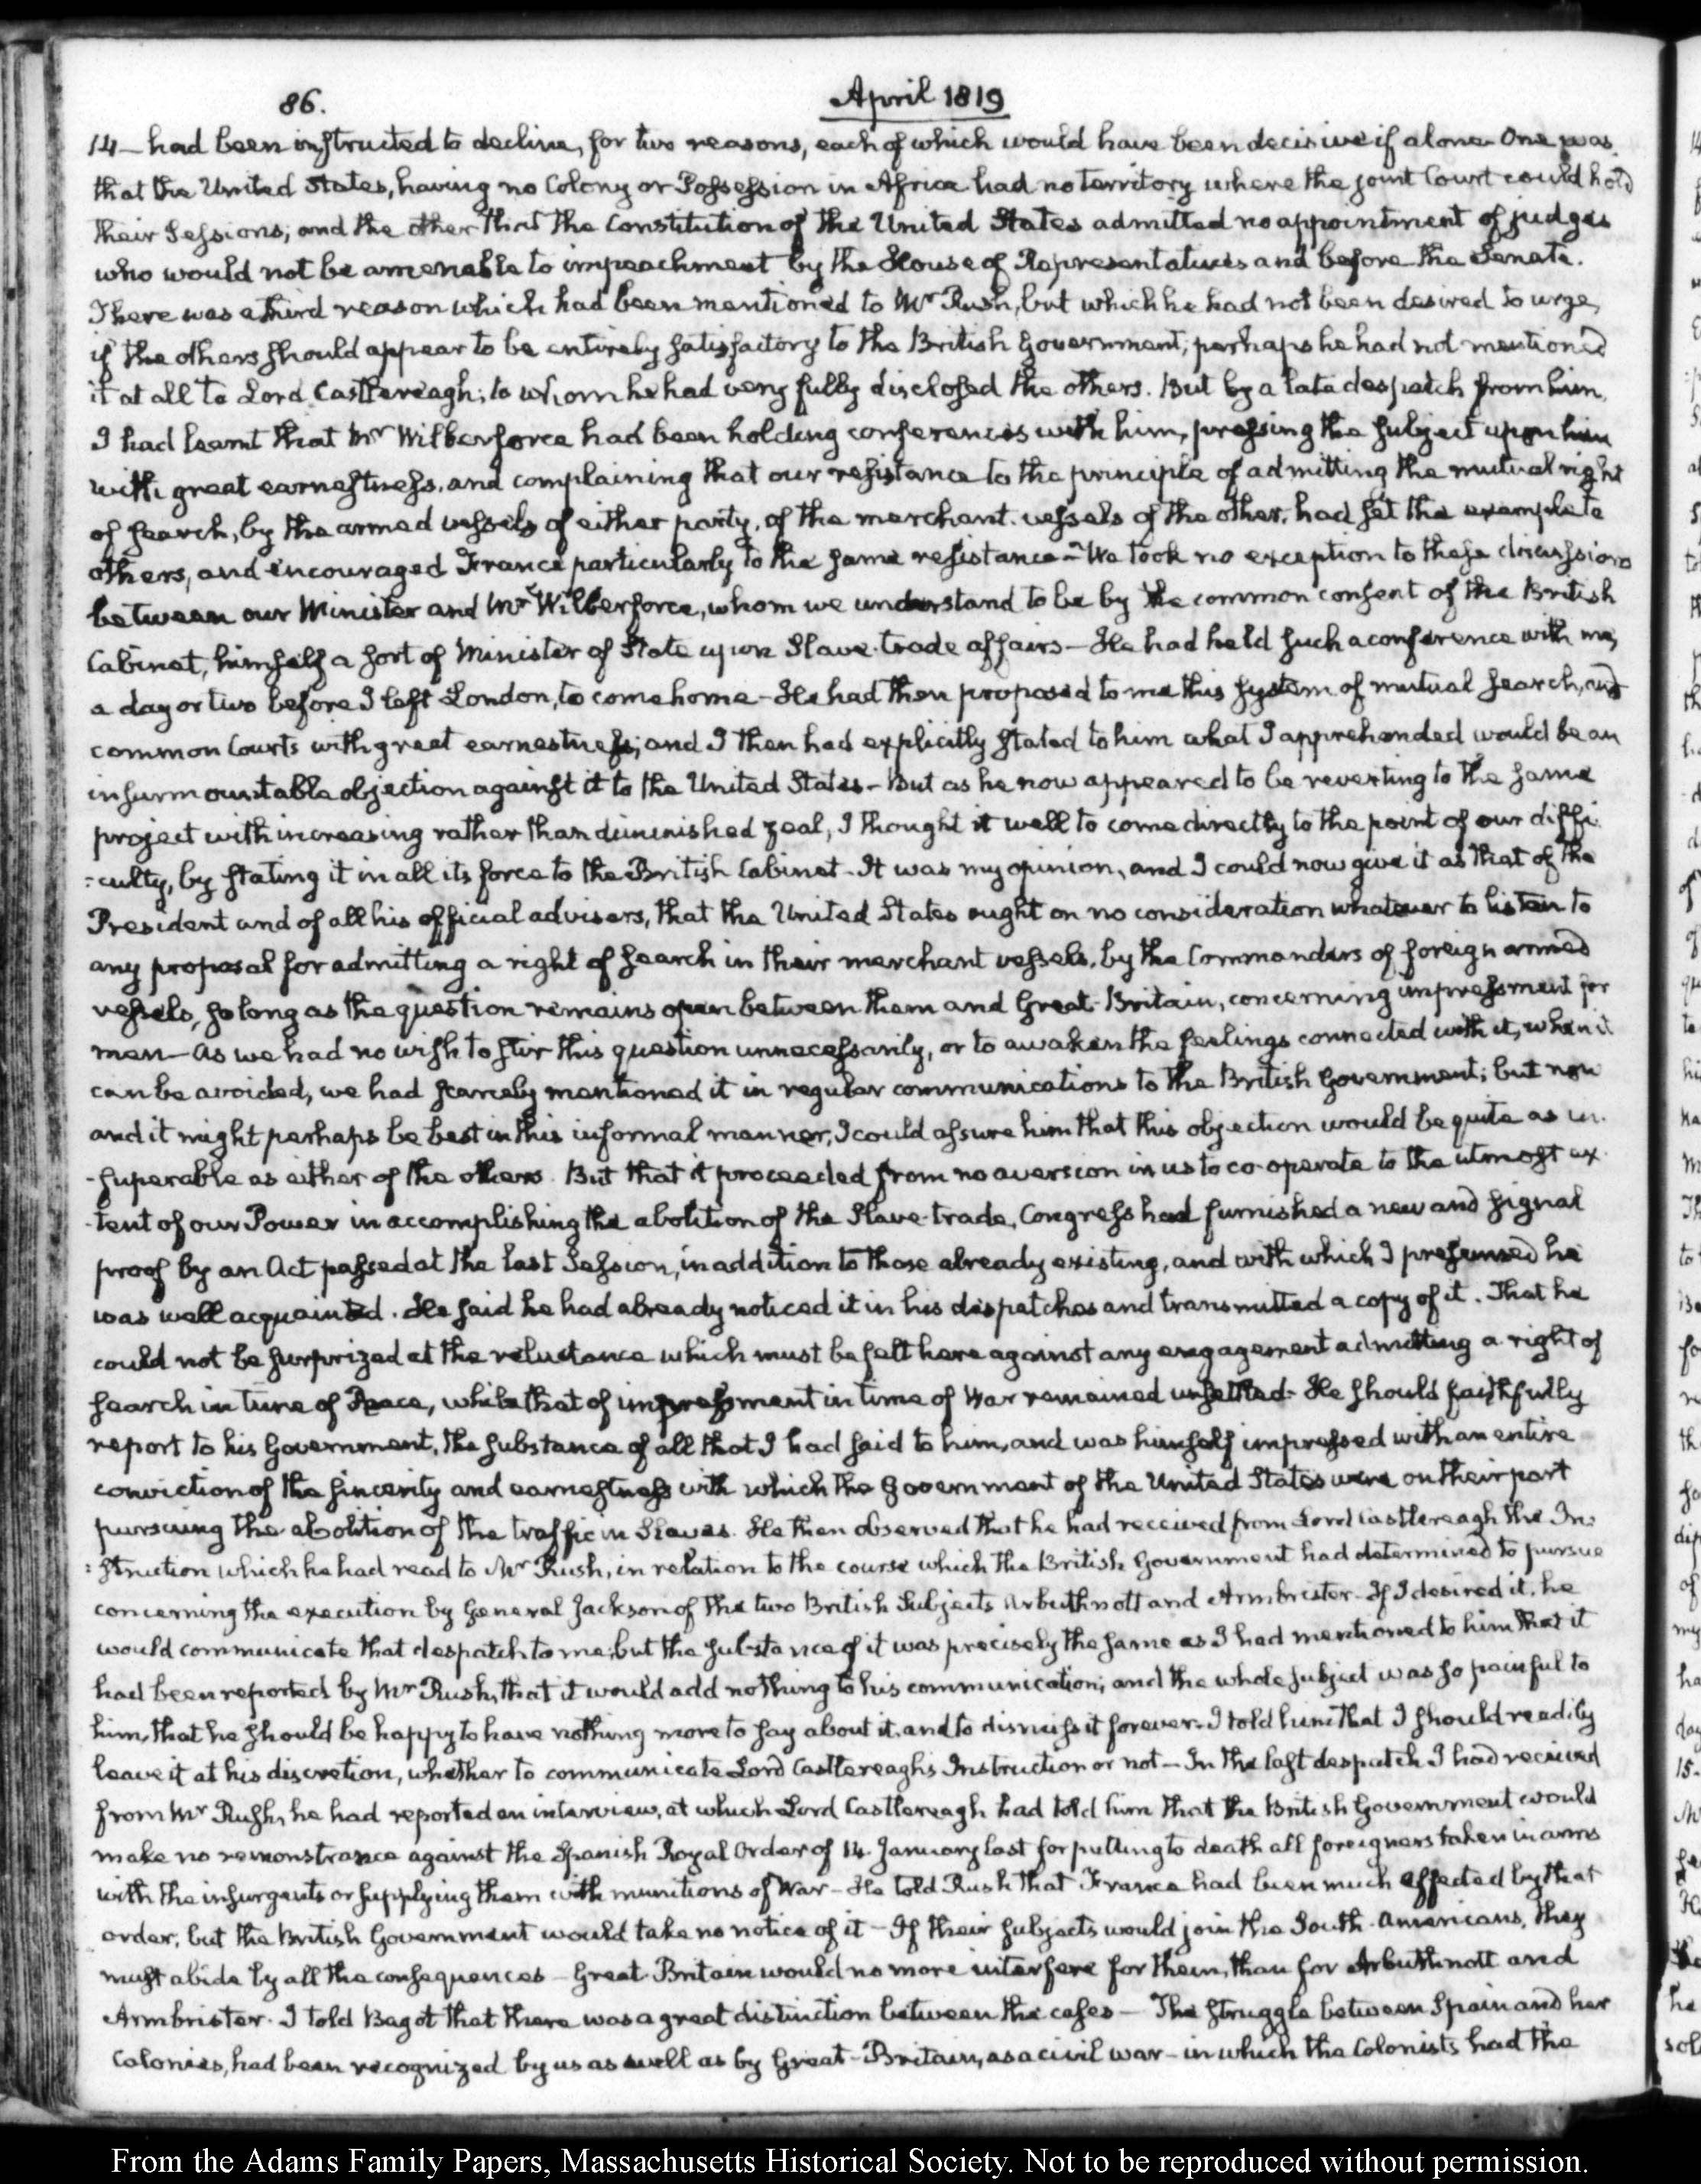 86.
April 1819
14 — had been instructed to decline, for two reasons, each of which would have been decisive if alone. One was
that the United States, having no Colony or Possession in Africa had no territory where the joint Court could hold
their Sessions; and the other that the Constitution of the United States admitted no appointment of judges
who would not be amenable to impeachment by the House of Representatives and before the Senate.
There was a third reason which had been mentioned to Mr Rush, but which he had not been desired to urge,
if the others should appear to be entirely satisfactory to the British Government; perhaps he had not mentioned
it at all to Lord Castlereagh; to whom he had very fully disclosed the others. But by a late despatch from him,
I had learnt that Mr Wilberforce had been holding conferences with him, pressing the subject upon him
with great earnestness, and complaining that our resistance to the principle of admitting the mutual right
of search, by the armed vessels of either party, of the merchant vessels of the other, had set the example to
others, and encouraged France particularly to the same resistance — We took no exception to these discussions
between our Minister and Mr Wilberforce, whom we understand to be by the common consent of the British
Cabinet, himself a sort of Minister of State upon Slave-trade affairs — He had held such a conference with me,
a day or two before I left London, to come home — He had then proposed to me this system of mutual search, and
common Courts with great earnestness; and I then had explicitly stated to him what I apprehended would be an
insurmountable objection against it to the United States — But as he now appeared to be reverting to the same
project with increasing rather than diminished zeal, I thought it well to come directly to the point of our diffi
:culty, by stating it in all its force to the British Cabinet. It was my opinion, and I could now give it as that of the
President and of all his official advisers, that the United States ought on no consideration whatever to listen to
any proposal for admitting a right of search in their merchant vessels, by the Commanders of foreign armed
vessels, so long as the question remains open between them and Great-Britain, concerning impressment for
men — As we had no wish to stir this question unnecessarily, or to awaken the feelings connected with it, when it
can be avoided, we had scarcely mentioned it in regular communications to the British Government; but now
and it might perhaps be best in this informal manner, I could assure him that this objection would be quite as in-
-superable as either of the others. But that it proceeded from no aversion in us to co-operate to the utmost ex
-tent of our Power in accomplishing the abolition of the Slave-trade, Congress had furnished a new and signal
proof by an Act passed at the last Session, in addition to those already existing, and with which I presumed he
was well acquainted. He said he had already noticed it in his despatches and transmitted a copy of it. That he
could not be surprized at the reluctance which must be felt here against any engagement admitting a right of
search in time of Peace, while that of impressment in time of War remained unsettled — He should faithfully
report to his Government, the substance of all that I had said to him, and was himself impressed with an entire
conviction of the sincerity and earnestness with which the Government of the United States were on their part
pursuing the abolition of the traffic in Slaves. He then observed that he had received from Lord Castlereagh the In:
:struction which he had read to Mr Rush, in relation to the course which the British Government had determined to pursue
concerning the execution by General Jackson of the two British Subjects Arbuthnott and Armbrister — If I desired it, he
would communicate that despatch to me; but the substance of it was precisely the same as I had mentioned to him that it
had been reported by Mr Rush, that it would add nothing to his communication; and the whole subject was so painful to
him, that he should be happy to have nothing more to say about it, and to dismiss it forever. I told him that I should readily
leave it at his discretion, whether to communicate Lord Castlereagh's Instruction or not — In the last despatch I had received
from Mr Rush, he had reported an interview, at which Lord Castlereagh had told him that the British Government would
make no remonstrance against the Spanish Royal Order of 14. January last for putting to death all foreigners taken in arms
with the insurgents or supplying them with munitions of War — He told Rush that France had been much affected by that
order, but the British Government would take no notice of it — If their subjects would join the South-Americans, they
must abide by all the consequences — Great-Britain would no more interfere for them, than for Arbuthnott and
Armbrister. I told Bagot that there was a great distinction between the cases — The struggle between Spain and her
Colonies, had been recognized by us as well as by Great-Britain, as a civil war — in which the Colonists had the
From the Adams Family Papers, Massachusetts Historical Society. Not to be reproduced without permission.